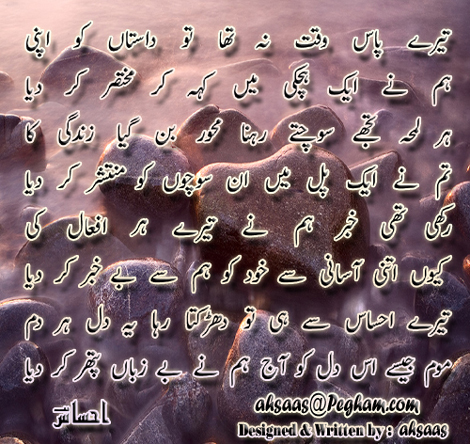 تیرے پاس وقت نہ تھا تو داستاں کو اپنی
ہم نے ایک ہچکی میں کہہ کر مختصر کر دیا
ہر لمحہ تجھے سوچتے رہنا محور بن گیا زندگی کا
تم نے ایک پل میں ان سوچوں کو منتشر کر دیا
رکھی تھی خبر ہم نے تیرے ہر افعال کی
کیوں اتنی آسانی سے خود کو ہم سے بے خبر کر دیا
تیرے احساس سے ہی تو دھڑکتا رہا یہ دل ہر دم
موم جیسے اس دل کو آج ہم نے بے زباں پتھر کر دیا
احساس
ahsaas@Pegham.com
Designed & Written by : ahsaas